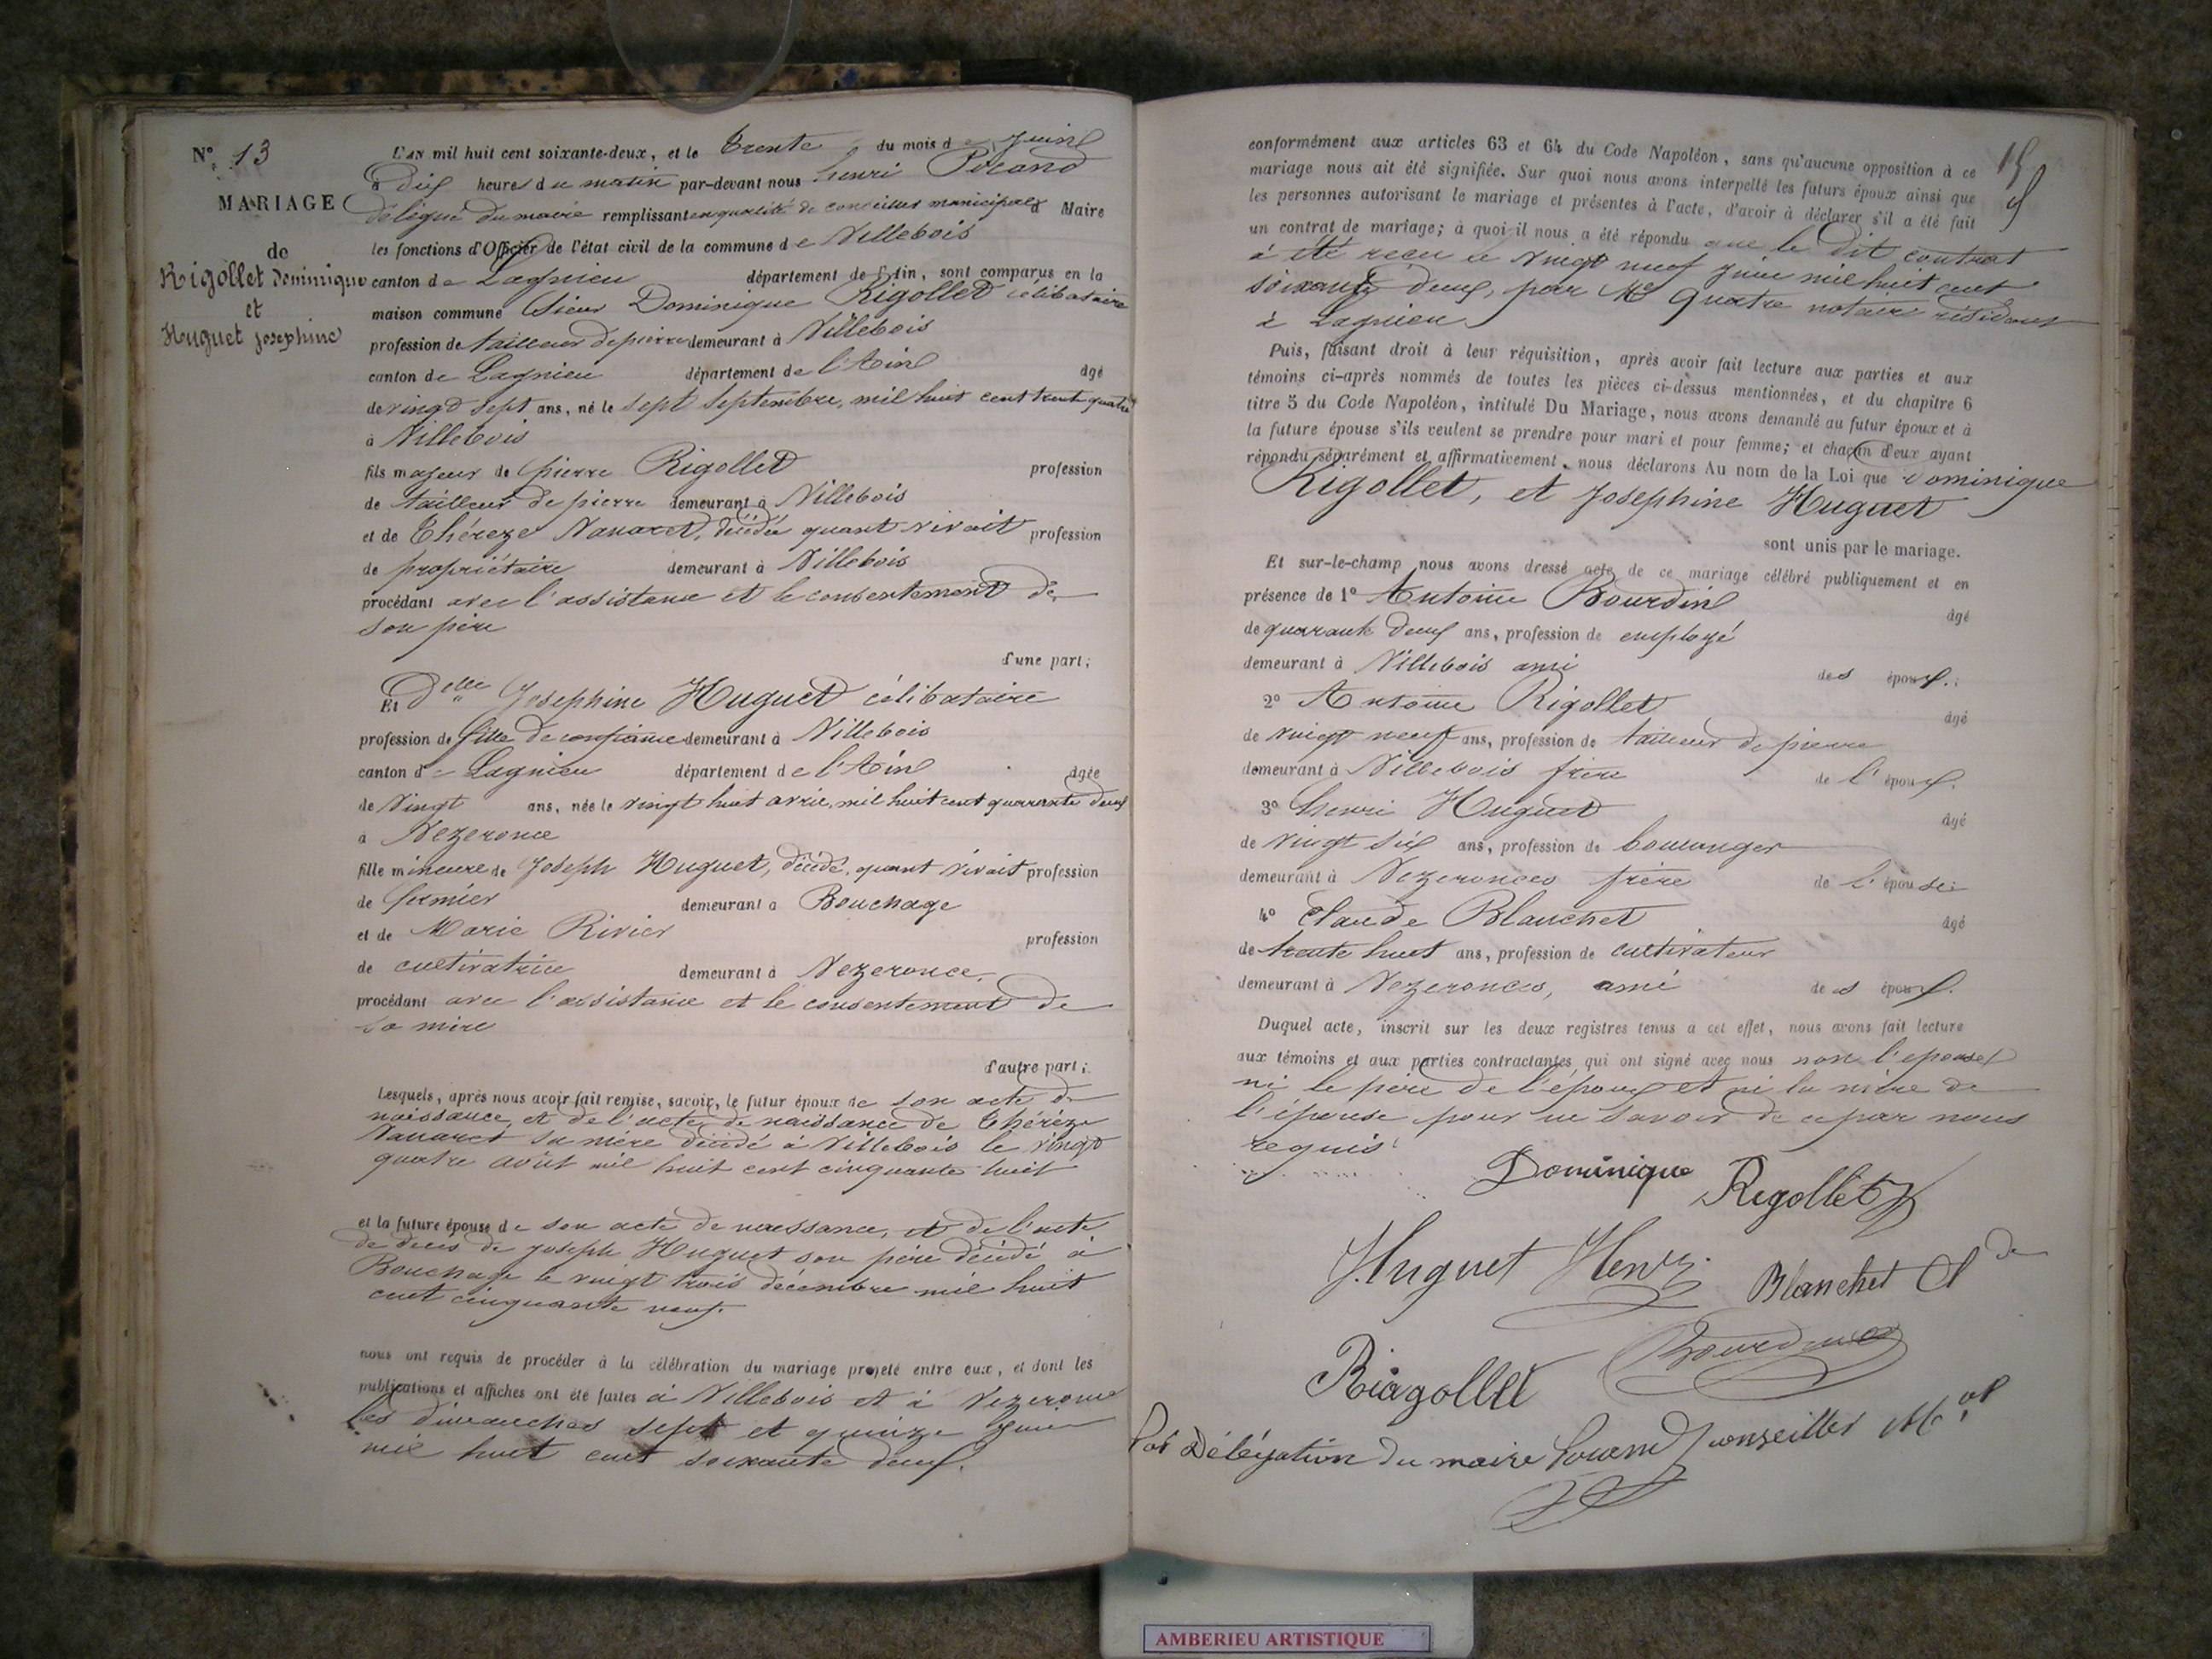 N° 13
MARIAGE
de
Rigollet Dominique
et
Huguet Josephine
L'AN mil huit cent soixante-deux, et le trente du mois de Juin
à dix heures du matin par-devant nous henri
délégué du maire remplissant en qualité de conseiller municipal Maire
les fonctions d'Officier de l'état civil de la commune de Villebois
canton de Lagnieu département de l'Ain, sont comparus en la
maison commune Sieur Dominique Rigollet célibataire
profession de tailleur de pierre demeurant à Villebois
canton de Lagnieu département de l'Ain âgé
de vingt sept ans, né le sept Septembre, mil huit cent trent quatre
à Villebois
fils majeur de pierre Rigollet profession
de tailleur de pierre demeurant à Villebois
et de Thérèze Nanaret, décédée quant vivait profession
de propriétaire demeurant à Villebois
procédant avec l'assistance et le consentement de
son père
d'une part;
Et Delle Josephine Huguet célibataire
profession de fille de confiance demeurant à Villebois
canton de Lagnieu département de l'Ain âgée
de vingt ans, née le vingt huit avril, mil huit cent quarante deux
à Vezeronce
fille mineure de Joseph Huguet, décédé, quant vivait profession
de fermier demeurant à Bouchage
et de Marie Rivier profession
de cultivatrice demeurant à Vezeronce,
procédant avec l'assistance et le consentement de
sa mère
d'autre part;
Lesquels, après nous avoir fait remise, savoir, le futur époux de son acte de
naissance, et de l'acte de naissance de Thérèze
Nanaret sa mère décédé à Villebois le vingt
quatre août mil huit cent cinquante huit
et la future épouse de son acte de naissance, et de l'acte
de décès de Joseph Huguet son père décédé à
Bouchage le vingt trois décembre mil huit
cent cinquante neuf.
nous ont requis de procéder à la célébration du mariage projeté entre eux, et dont les
publications et affiches ont été faites à Villebois et à Vezeronce
les dimanches sept et quinze Juin
mil huit cent soixante deux.
15
conformément aux articles 63 et 64 du Code Napoléon, sans qu'aucune opposition à ce
mariage nous ait été signifiée. Sur quoi nous avons interpellé les futurs époux ainsi que
les personnes autorisant le mariage et présentes à l'acte, d'avoir à déclarer s'il a été fait
un contrat de mariage; à quoi il nous a été répondu que le dit contrat
à été reçu le vingt neuf Juin mil huit cent
soixante deux, par Me Quatre notaire résidant
à Lagnieu
Puis, faisant droit à leur réquisition, après avoir fait lecture aux parties et aux
témoins ci-après nommés de toutes les pièces ci-dessus mentionnées, et du chapitre 6
titre 5 du Code Napoléon, intitulé Du Mariage, nous avons demandé au futur époux et à
la future épouse s'ils veulent se prendre pour mari et pour femme; et chacun d'eux ayant
répondu séparément et affirmativement, nous déclarons Au nom de la Loi que Dominique
Rigollet, et Josephine Huguet
sont unis par le mariage.
Et sur-le-champ nous avons dressé acte de ce mariage célébré publiquement et en
présence de 1° Antoine Bourdin âgé
de quarante deux ans, profession de employé
demeurant à Villebois ami des époux.
2° Antoine Rigollet âgé
de vingt neuf ans, profession de tailleur de pierre
demeurant à Villebois frère de l'époux.
3° henri Huguet âgé
de vingt six ans, profession de boulanger
demeurant à Vezeronces frère de l'épouse
4° Claude Blanchet âgé
de trente huit ans, profession de cultivateur
demeurant à Vezeronces, ami des époux.
Duquel acte, inscrit sur les deux registres tenus à cet effet, nous avons fait lecture
aux témoins et aux parties contractantes qui ont signé avec nous non l'epouse
ni le père de l'époux et ni la mère de
l'épouse pour ne savoir de ce par nous
requis
Dominique Rigollet
Huguet Henry
Blanchet Cde
Riagollet
Bourdin
Par Délégation du maire conseiller Mal
AMBERIEU ARTISTIQUE